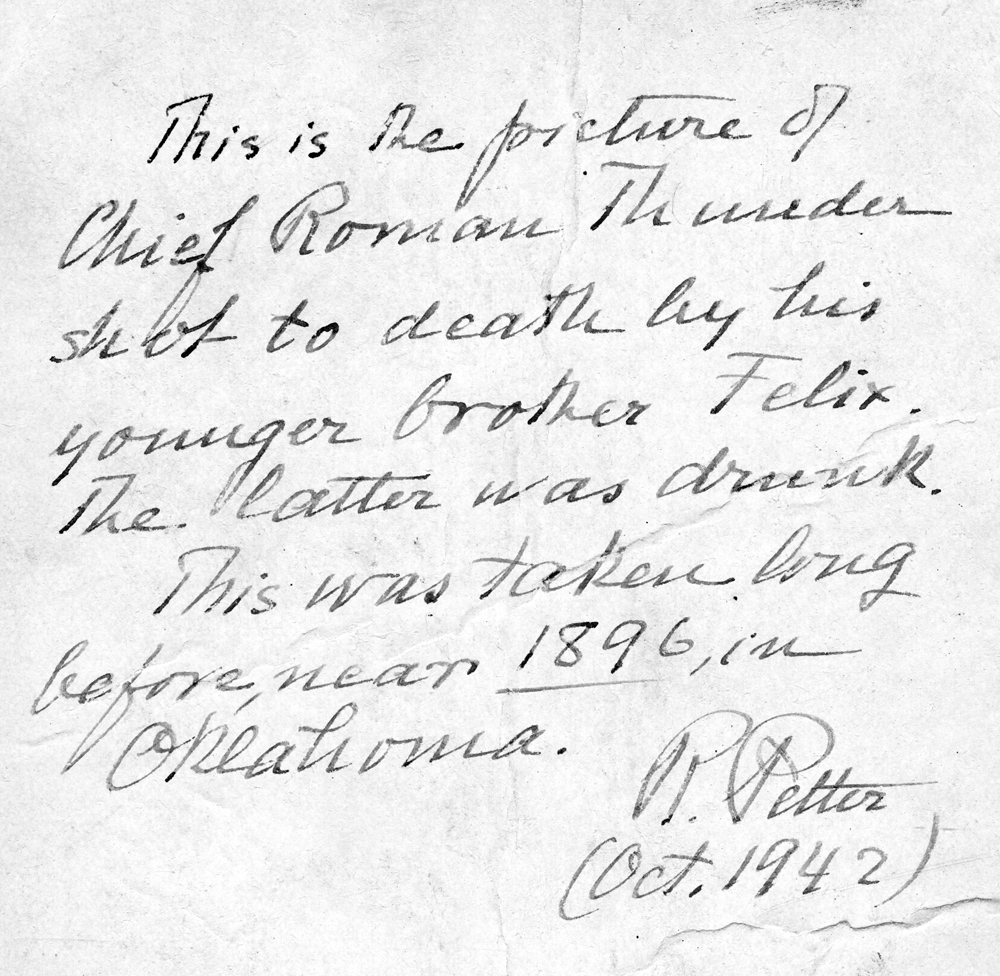 This is the picture of
Chief Roman Thunder
shot to death by his
younger brother Felix.
The latter was drunk.
This was taken long
before, near 1896, in
Oklahoma.
R. Petter
(Oct. 1942)